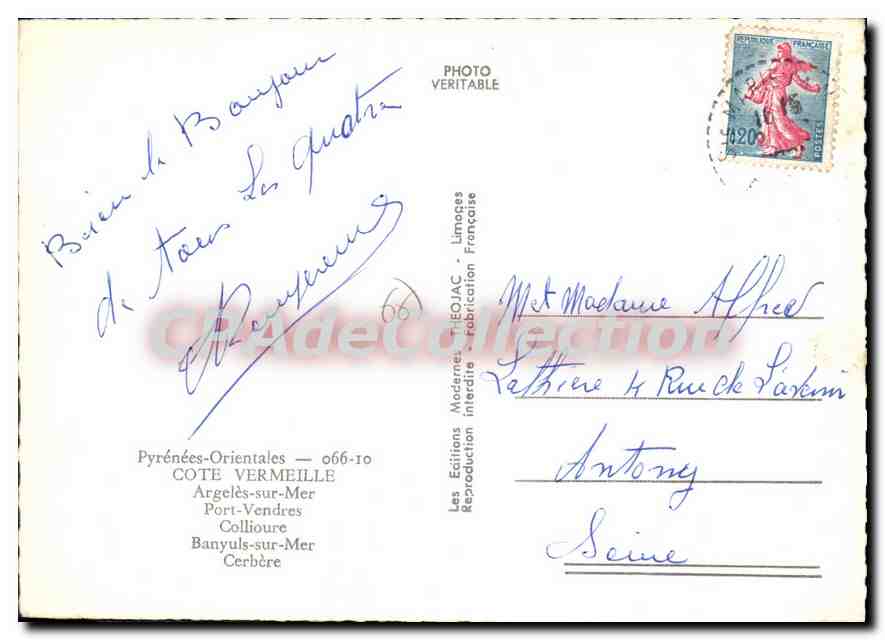 Bien le Bonjour
de tous Les quatre
66
Pyrénées-Orientales — 066-10
COTE VERMEILLE
Argelès-sur-Mer
Port-Vendres
Collioure
Banyuls-sur-Mer
Cerbère
PHOTO
VERITABLE
Les Editions Modernes THEOJAC - Limoges
Reproduction interdite - Fabrication Française
REPUBLIQUE FRANÇAISE
0,20
POSTES
M et Madame Alfred
Lathiere 4 Rue de L'avenir
Antony
Seine
CPAdeCollection